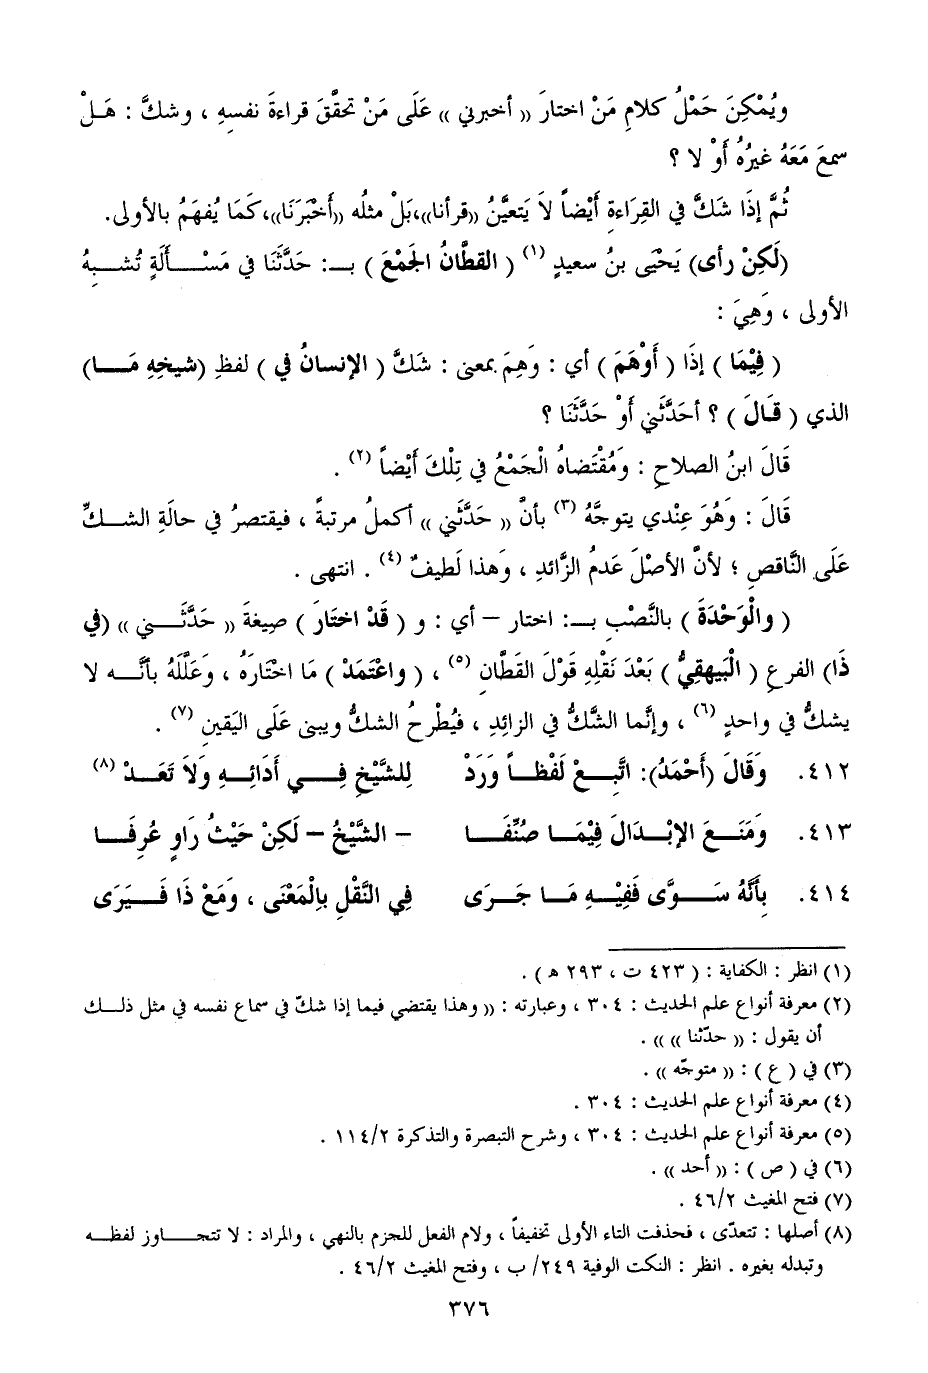 ويُمْكِنَ حَمْلُ كلامِ مَنْ اختارَ (( أخبرني )) عَلَى مَنْ تحقَّقَ قراءةَ نفسهِ ، وشكَّ : هَلْ
سمعَ مَعَهُ غيرُهُ أَوْ لا ؟
ثُمَّ إذَا شَكَّ في القِرَاءةِ أَيْضاً لاَ يَتعيَّنُ ((قرأنا))،بَلْ مثلُه ((أَخْبَرَنَا))،كَمَا يُفهَمُ بالأولى.
(لَكِنْ رأى) يَحْيَى بنُ سعيدٍ (١) ( القطَّانُ الجَمْعَ ) بـ: حَدَّثَنَا في مَسْـأَلَةٍ تُشبِـهُ
الأولى ، وَهِيَ :
( فِيْمَا ) إذَا ( أَوْهَمَ ) أي : وَهِمَ بمعنى : شكَّ ( الإنسانُ في ) لفظِ (شيخِهِ مَـا)
الذي ( قَالَ ) ؟ أحَدَّثَني أَوْ حَدَّثَنَا ؟
قَالَ ابنُ الصلاحِ : وَمُقْتَضاهُ الْجَمْعُ في تِلْكَ أَيْضاً (٢) .
قَالَ : وَهُوَ عِنْدي يتوجَّهُ (٣) بأنَّ (( حَدَّثَني )) أكملُ مرتبةً ، فيقتصرُ في حالَةِ الشـكِّ
عَلَى النَّاقصِ ؛ لأنَّ الأصْلَ عَدمُ الزَّائدِ ، وَهذا لَطيفٌ (٤) . انتهى .
( والْوَحْدَةَ ) بالنَّصْبِ بـ: اختار – أي : و ( قَدْ اختَارَ ) صِيغةَ (( حَدَّثَـني )) (في
ذَا) الفرعِ ( الْبَيهقِيُّ ) بَعْدَ نَقْلِهِ قَوْلَ القَطَّانِ (٥) ، ( واعْتَمَدْ ) مَا اخْتَارَهُ ، وَعَلَّلَهُ بأنَّـه لا
يشكُّ في واحدٍ (٦) ، وإنَّما الشَّكُّ في الزائِدِ ، فَيُطْرحُ الشكُّ ويبنى عَلَى اليَقينِ (٧) .
٤١٢. وَقَالَ (أَحْمَدُ): اتَّبِـعْ لَفْظـاً وَرَدْ للشَّيْخِ فِـي أَدَائِـهِ وَلاَ تَعَـدْ (٨)
٤١٣. وَمَنَـعَ الإبْـدَالَ فِيْمَـا صُنِّفَـا – الشَّيْخُ – لَكِنْ حَيْثُ رَاوٍ عُرِفَـا
٤١٤. بِأَنَّهُ سَـوَّى فَفِيْـهِ مَـا جَـرَى فِي النَّقْلِ بِالْمَعْنَى ، وَمَعْ ذَا فَـيَرَى
(١) انظر : الكفاية : ( ٤٢٣ ت ، ٢٩٣ هـ ) .
(٢) معرفة أنواع علم الحديث : ٣٠٤ ، وعبارته : (( وهذا يقتضي فيما إذا شكّ في سماع نفسه في مثل ذلـك
أن يقول : (( حدّثنا )) )) .
(٣) في ( ع ) : (( متوجّه )) .
(٤) معرفة أنواع علم الحديث : ٣٠٤ .
(٥) معرفة أنواع علم الحديث : ٣٠٤ ، وشرح التبصرة والتذكرة ١١٤/٢ .
(٦) في ( ص ) : (( أحد )) .
(٧) فتح المغيث ٤٦/٢ .
(٨) أصلها : تتعدّى ، فحذفت التاء الأولى تخفيفاً ، ولام الفعل للجزم بالنهي ، والمراد : لا تتجـاوز لفظـه
وتبدله بغيره . انظر : النكت الوفية ٢٤٩/ ب ، وفتح المغيث ٤٦/٢ .
٣٧٦